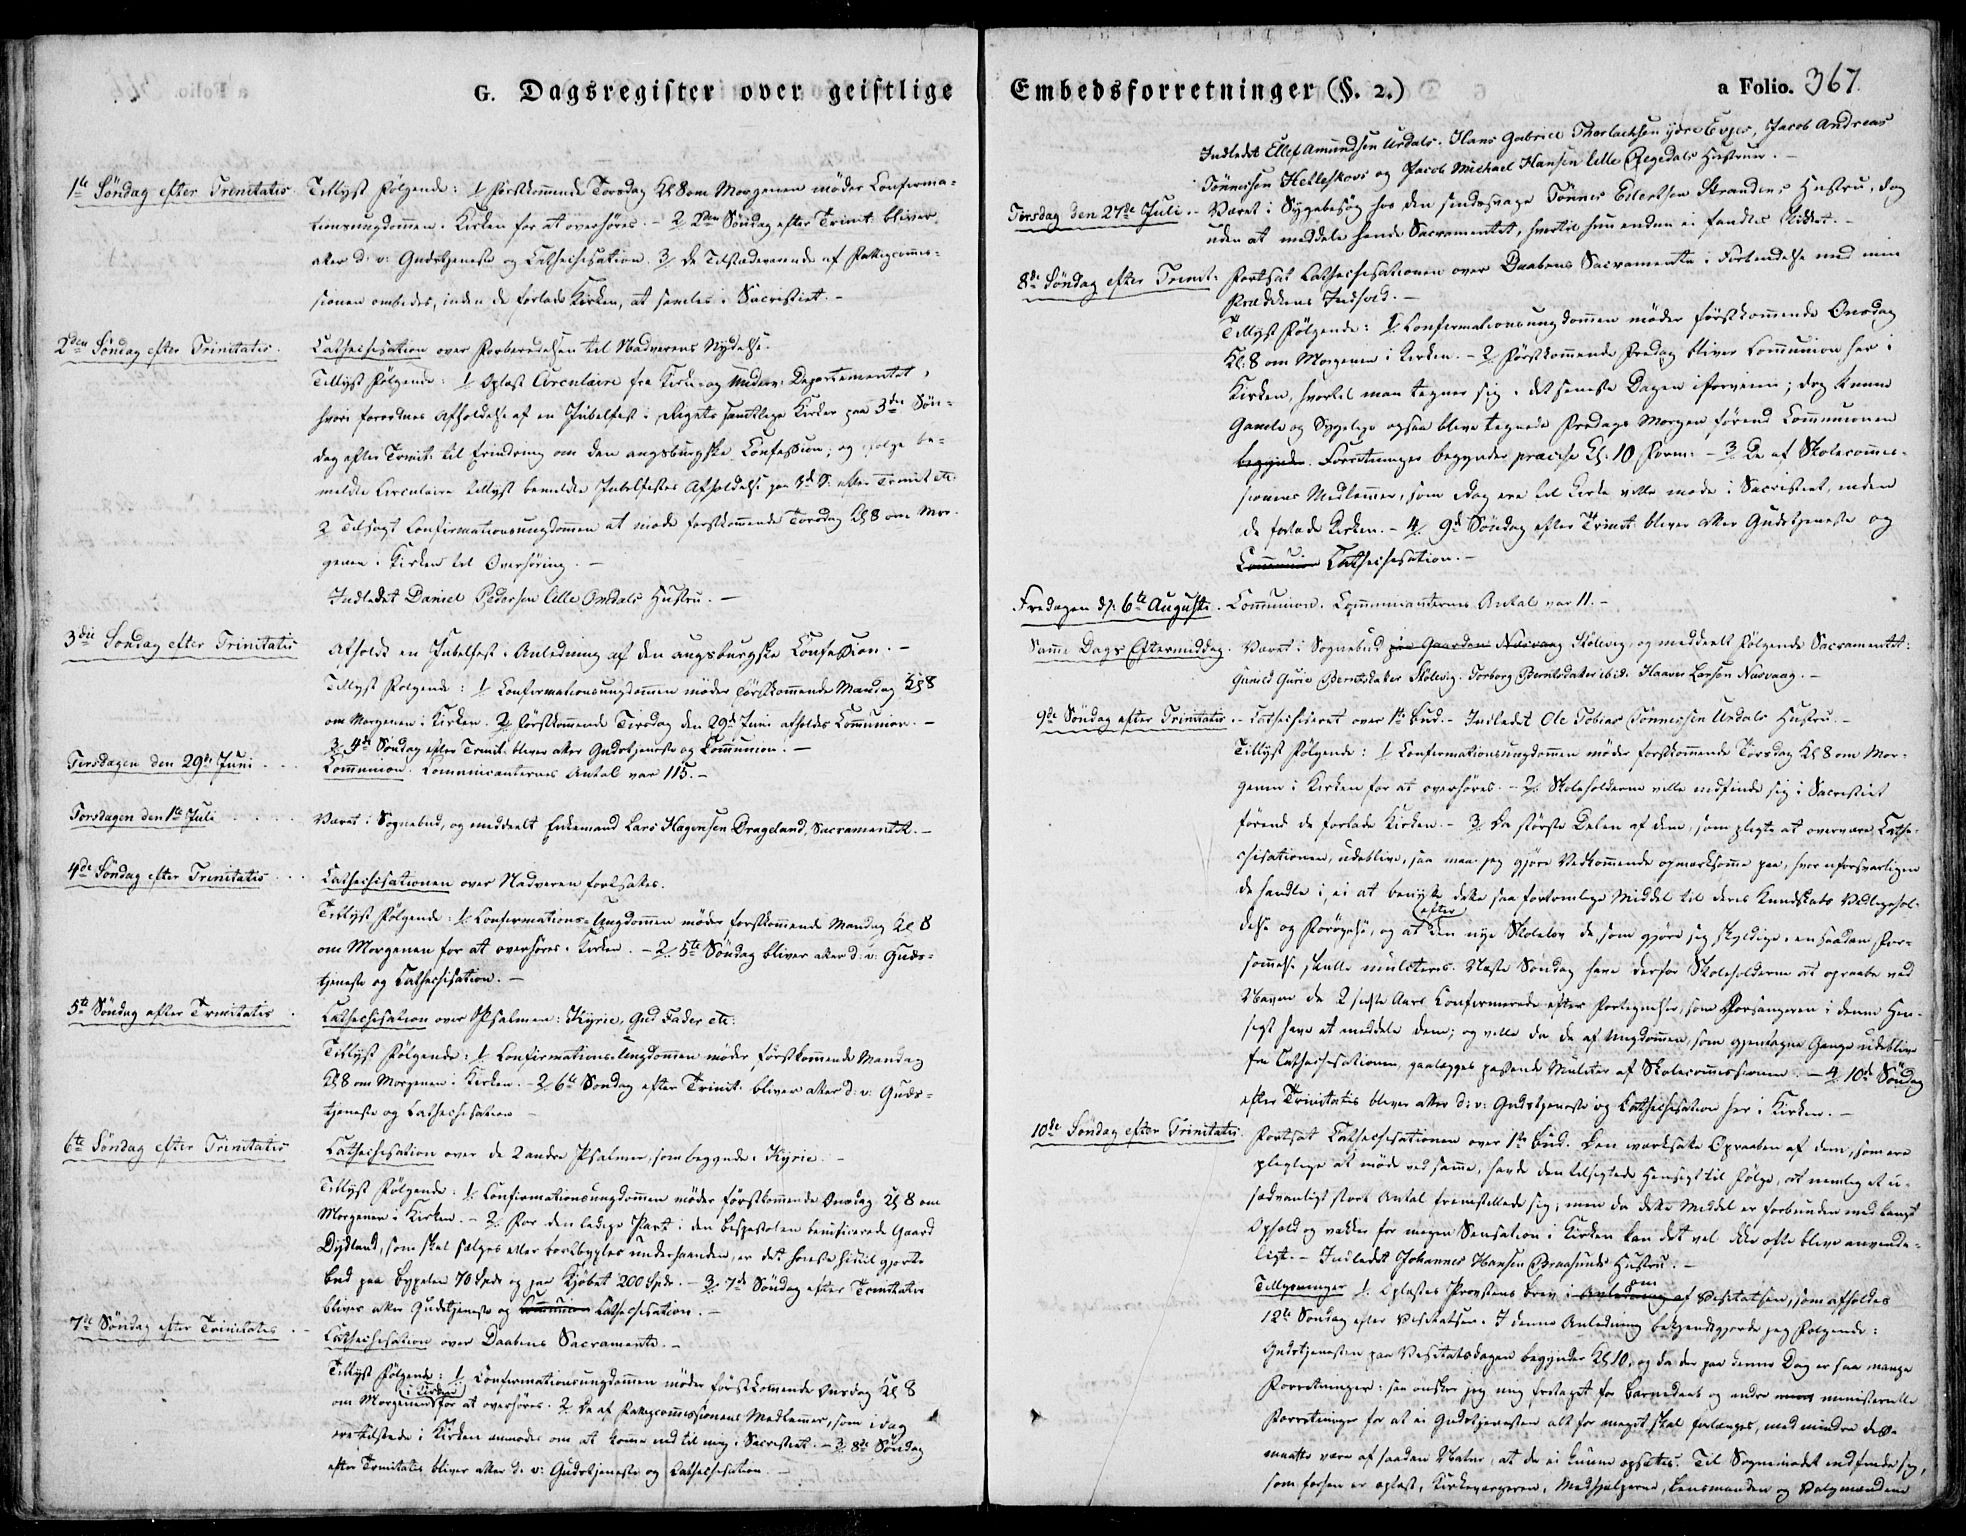 G. Dagsregister over geistlige
1te Søndag efter Trinitatis. Tillyst Følgende: 1/ førstkommende Torsdag Kl 8 om Morgenen møder Confirma-
tionsungdommen i Kirken for at overhøres. – 2 2den Søndag efter Trinit. bliver
atter d: v: Gudstjeneste og Cathechisation. 3/ De Tilstedeværende af Fattigcommis-
sionen ombedes, inden de forlade Kirken, at samles i Sacristiet. –
2den Søndag efter Trinitatis. Cathechisation over Forberedelsen til Nadverens Nydelse.
Tillyst Følgende: 1/ Oplæst Circulaire fra Kirke- og Underv: Departementet,
hvori forordnes Afholdelse af en Jubelfest i Rigets samtlige Kirker paa 3die Søn-
dag efter Trinit. til Erindring om den augsburgske Confession; og ifølge be-
meldte Circulaire tillyst bemeldte Jubelfestes Afholdelse paa 3d S. efter Trinit etc.
2 Tilsagt Confirmationsungdommen at møde førstkommende Torsdag Kl 8 om Mor-
genen i Kirken til Overhøring. –
Indledet Daniel Pedersen Lille Omdals Hustru. –
3die Søndag efter Trinitatis Afholdt en Jubelfest i Anledning af den augsburgske Confession. –
Tillyst Følgende: 1/ Confirmationsungdommen møder førstkommende Mandag Kl 8
om Morgenen i Kirken. 2/ førstkommende Tirsdag den 29d Juni afholdes Communion. –
3/ 4de Søndag efter Trinit. bliver atter Gudstjeneste og Communion. –
Tirsdagen den 29de Juni . . . Communion. Communicanternes Antal var 115. –
Torsdagen den 1te Juli . . . . Været i Sognebud, og meddeelt Enkemand Lars Hagensen Drageland, Sacramentet. –
4de Søndag efter Trinitatis . . . Cathechisationen over Nadveren fortsattes.
Tillyst Følgende: 1/ Confirmations-Ungdommen møder førstkommende Mandag Kl 8
om Morgenen for at overhøres i Kirken. – 2 5te Søndag bliver atter d: v: Guds-
tjeneste og Cathechisation. –
5te Søndag efter Trinitatis . Cathechisation over Psalmen: Kyrie, Gud Fader etc:
Tillyst Følgende: 1/ Confirmations-Ungdommen møder førstkommende Mandag
Kl 8 om Morgenen i Kirken. – 2/ 6te Søndag efter Trinit. bliver atter d: v: Guds-
tjeneste og Cathechisation –
6te Søndag efter Trinitatis Cathechisation over de 2 andre Psalmer, som begynde: Kyrie. –
Tillyst Følgende: 1/ Confirmationsungdommen møder førstkommende Onsdag Kl 8 om
Morgenen i Kirken. – 2 For den ledige Part i den Bispestolen beneficerede Gaard
Dydland, som skal sælges eller bortbygles underhaanden, er det høieste hidtil gjorte
Bud paa Bygselen 70 Spd og paa Kjøbet 200 Spd. – 3. 7de Søndag efter Trinitatis
bliver atter Gudstjeneste og Communion Cathechisation. –
7de Søndag efter Trinitatis . – Cathechisation over Daabens Sacramente. –
Tillyst Følgende: 1/ Confirmationsungdommen møder førstkommende Onsdag Kl 8
om Morgenen i Kirken for at overhøres. 2 De af Fattigcommissionens Medlemmer, som i dag
ere tilstede i Kirken anmodes om at komme ind til mig i Sacristiet. – 3 8de Søndag
efter Trinitatis bliver atter d. v: Gudstjeneste og Cathechisation. –
Embedsforretninger (§. 2.) a Folio. 367.
Indledet Ellef Amundsen Urdals. Hans Gabriel Thorlachsen ydre Eyjes, Jacob Andreas
Tønnessen Helleskovs og Jacob Michael Hansen lille Øegedals Hustruer. –
Tirsdag den 27de Juli. – Været i Sygebesøg hos den sindssvage Tønnes Eilertsen Strandens Hustru, dog
uden at meddele hende Sacramentet, hvortil hun endnu ei fandtes skikket. –
8de Søndag efter Trinit. Fortsat Cathechisationen over Daabens Sacramente i Forbindelse med min
Prædikens Indhold. –
Tillyst Følgende: 1/ Confirmationsungdommen møder førstkommende Onsdag
Kl: 8 om Morgenen i Kirken. – 2/ Førstkommende Fredag bliver Communion her i
Kirken, hvortil man tegner sig i det seneste Dagen iforveien; dog kunne
Gamle og Sygelige ogsaa blive tegnede Fredags Morgen, førend Communionen
begynder. Forretninger begynder præcise Kl. 10 Form: – 3. De af Skolecommis-
sionens Medlemmer, som idag ere til Kirke ville møde i Sacristiet, inden
de forlade Kirken. – 4/ 9de Søndag efter Trinit. bliver atter Gudstjeneste og
Communion Cathechisation. –
Fredagen d: 6te Augusti. Communion. Communicanternes Antal var 11. –
Samme Dags Eftermiddag. Været i Sognebud paa Gaarden Navvaag Stølevig, og meddeelt Følgende Sacramentet:
Gunild Gurie Berntsdatter Stølevig. Torborg Berntsdatter ibid. Haaver Larsen Navvaag. –
9de Søndag efter Trinitatis. – Cathechiseret over 1te Bud. – Indledet Ole Tobias Tønnessen Urdals Hustru. –
Tillyst Følgende: 1/ Confirmationsungdommen møder førstkommende Torsdag Kl 8 om Mor-
genen i Kirken for at overhøres. – 2/ Skoleholderne ville indfinde sig i Sacristiet
førend de forlade Kirken. – 3. Da største Delen af dem, som pligte at overvære Cathe-
chisationen, udeblive, saa maa jeg gjøre Vedkommende opmærksomme paa, hvor uforsvarligen
de handle i, ei at benytte dette saa fortrinlige Middel til deres Kundskabs Vedligehol-
delse og Forøgelse, og at efter den nye Skolelov de, som gjøre sig skyldige i en saadan For-
sømmelse skulle mulcteres. Næste Søndag have derfor Skoleholderne at opraabe ved
Navne de 2 sidste Aars Confirmerede efter Fortegnelser, som Forsangeren i denne Hen-
sigt have at meddele dem; og ville da de af Ungdommen, som gjentagne Gange udeblive
fra Cathechisationen, paalægges passende Mulcter af Skolecommissionen. – 4 10de Søndag
efter Trinitatis bliver atter d: v: Gudstjeneste og Cathechisation her i Kirken. –
10de Søndag efter Trinitatis. Fortsat Cathechisationen over 1te Bud. Den iværksatte Opraaben af dem, som ere
pligtige at møde ved samme, havde den tilsigtede Hensigt til Følge, at nemlig et u-
sædvanligt stort Antal fremstillede sig; men da dette Middel er forbunden med langt
Ophold og vækker for megen Sensation i Kirken kan det vel ikke ofte blive anvende-
ligt. – Indledet Johannes Hansen Braasunds Hustru. –
Tillysninger 1. Oplæstes Provstens Brev i Anledning af om Visitatsen, som afholdes
12te Søndag efter Trinitatis. I denne Anledning bekjendtgjorde jeg Følgende:
Gudstjenesten paa Visitatsdagen begynder Kl 10, og da der paa denne Dag er saa mange
Forretninger: saa ønsker jeg mig forskaanet for Barnedaab og andre ministerielle
Forretninger for at ei Gudstjenesten alt for meget skal forlænges, med mindre disse
maatte være af saadan Natur, at de ei kunne opsættes. Til Sognemødet indfinde sig,
som forhen er oplæst, Kirkeværgerne, Medhjælperne, Lensmanden og Valgmændene